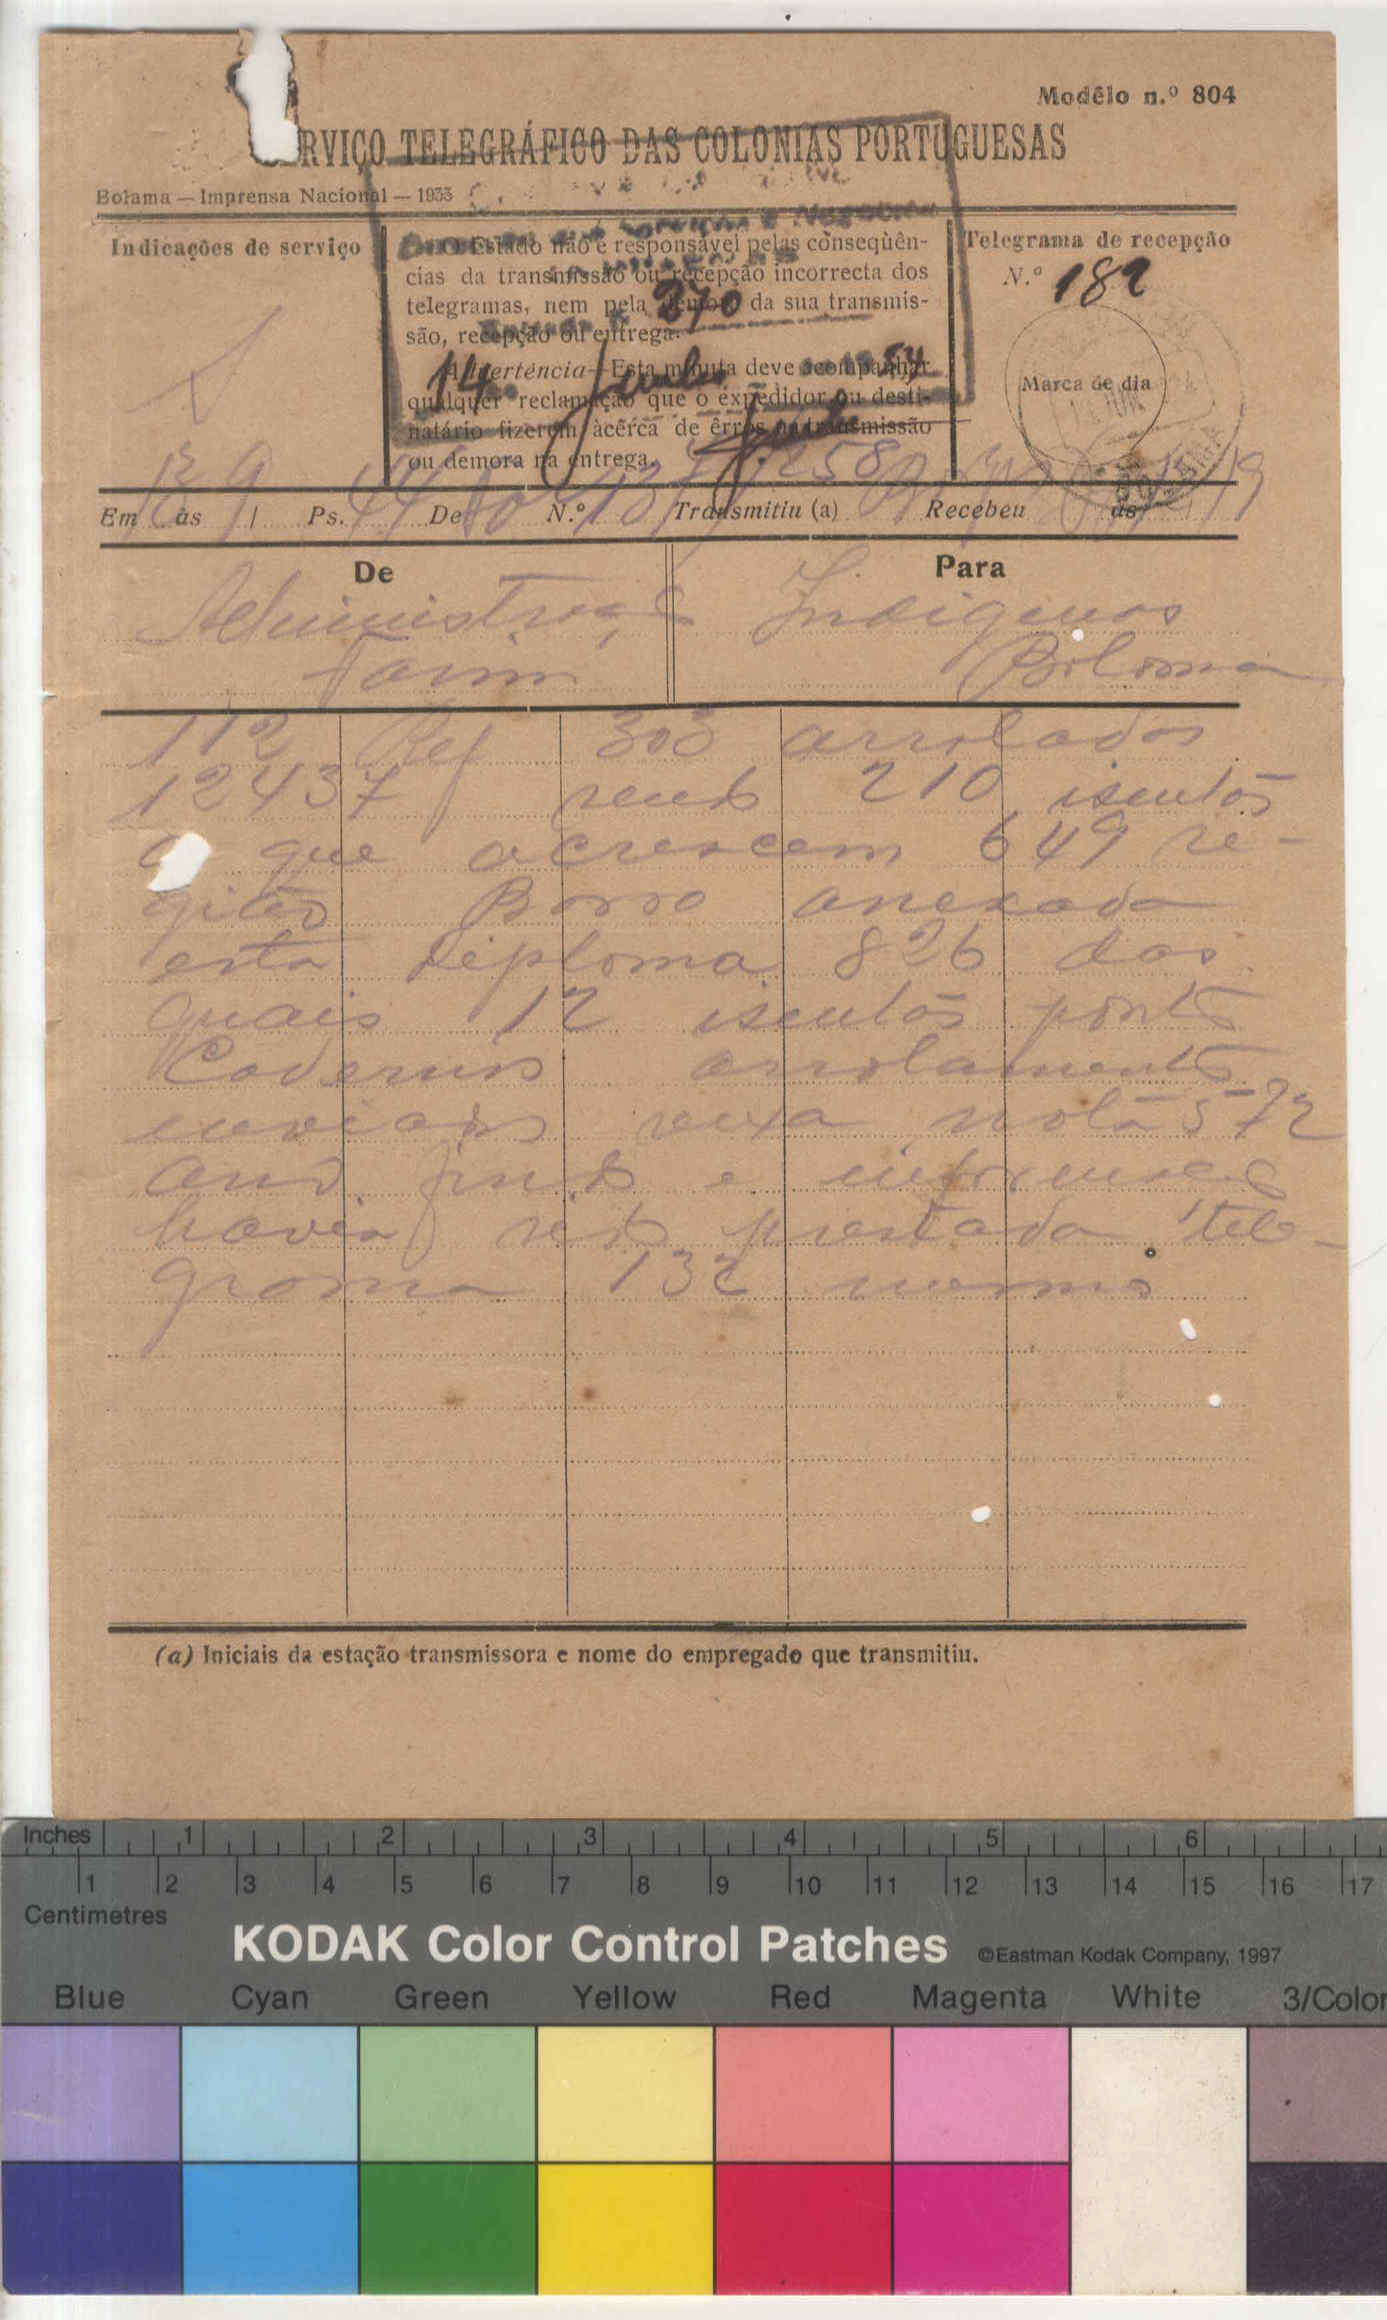 Modêlo n.º 804
RVIÇO TELEGRÁFICO DAS COLONIAS PORTUGUESAS
Bolama — Imprensa Nacional — 1933
Indicações de serviço
O Estado não é responsável pelas conseqüên-
cias da transmissão ou recepção incorrecta dos
telegramas, nem pela da sua transmis-
são, recepção ou entrega.
Advertência—Esta minuta deve acompanhar
qualquer reclamação que o expedidor ou desti-
natário fizerem àcêrca de êrros na transmissão
ou demora na entrega.
370
14 Junho 34
Telegrama de recepção
N.º 182
Marca de dia
Em às Ps. De N.º Transmitiu (a) Recebeu às
De
Para
Administração
Farim
Indigenas
Bolama
112 Ref 303 arrolados
12437 sendo 210 isentos
a que acrescem 649 re-
gião Borro anexada
esta Diploma 826 dos
quais 12 isentos ponto
Cadernos arrolamento
enviados vexa nota 572
ano findo e informação
havia sido prestada tele-
grama 132 mesmo
(a) Iniciais da estação transmissora e nome do empregado que transmitiu.
Inches 1 2 3 4 5 6
1 2 3 4 5 6 7 8 9 10 11 12 13 14 15 16 17
Centimetres
KODAK Color Control Patches ©Eastman Kodak Company, 1997
Blue Cyan Green Yellow Red Magenta White 3/Color